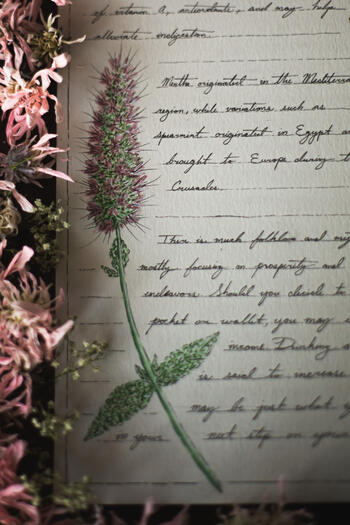 of vitamin A, antioxidants, and may help
alleviate indigestion.
Mentha originated in the Mediterra
region, while variations such as
spearmint originated in Egypt a
brought to Europe during t
Crusades.
There is much folklore and
mostly focusing on prosperity and
endeavors. Should you decide to
pocket or wallet, you may
income. Drinking
is said to increase
may be just what y
in your next step on your